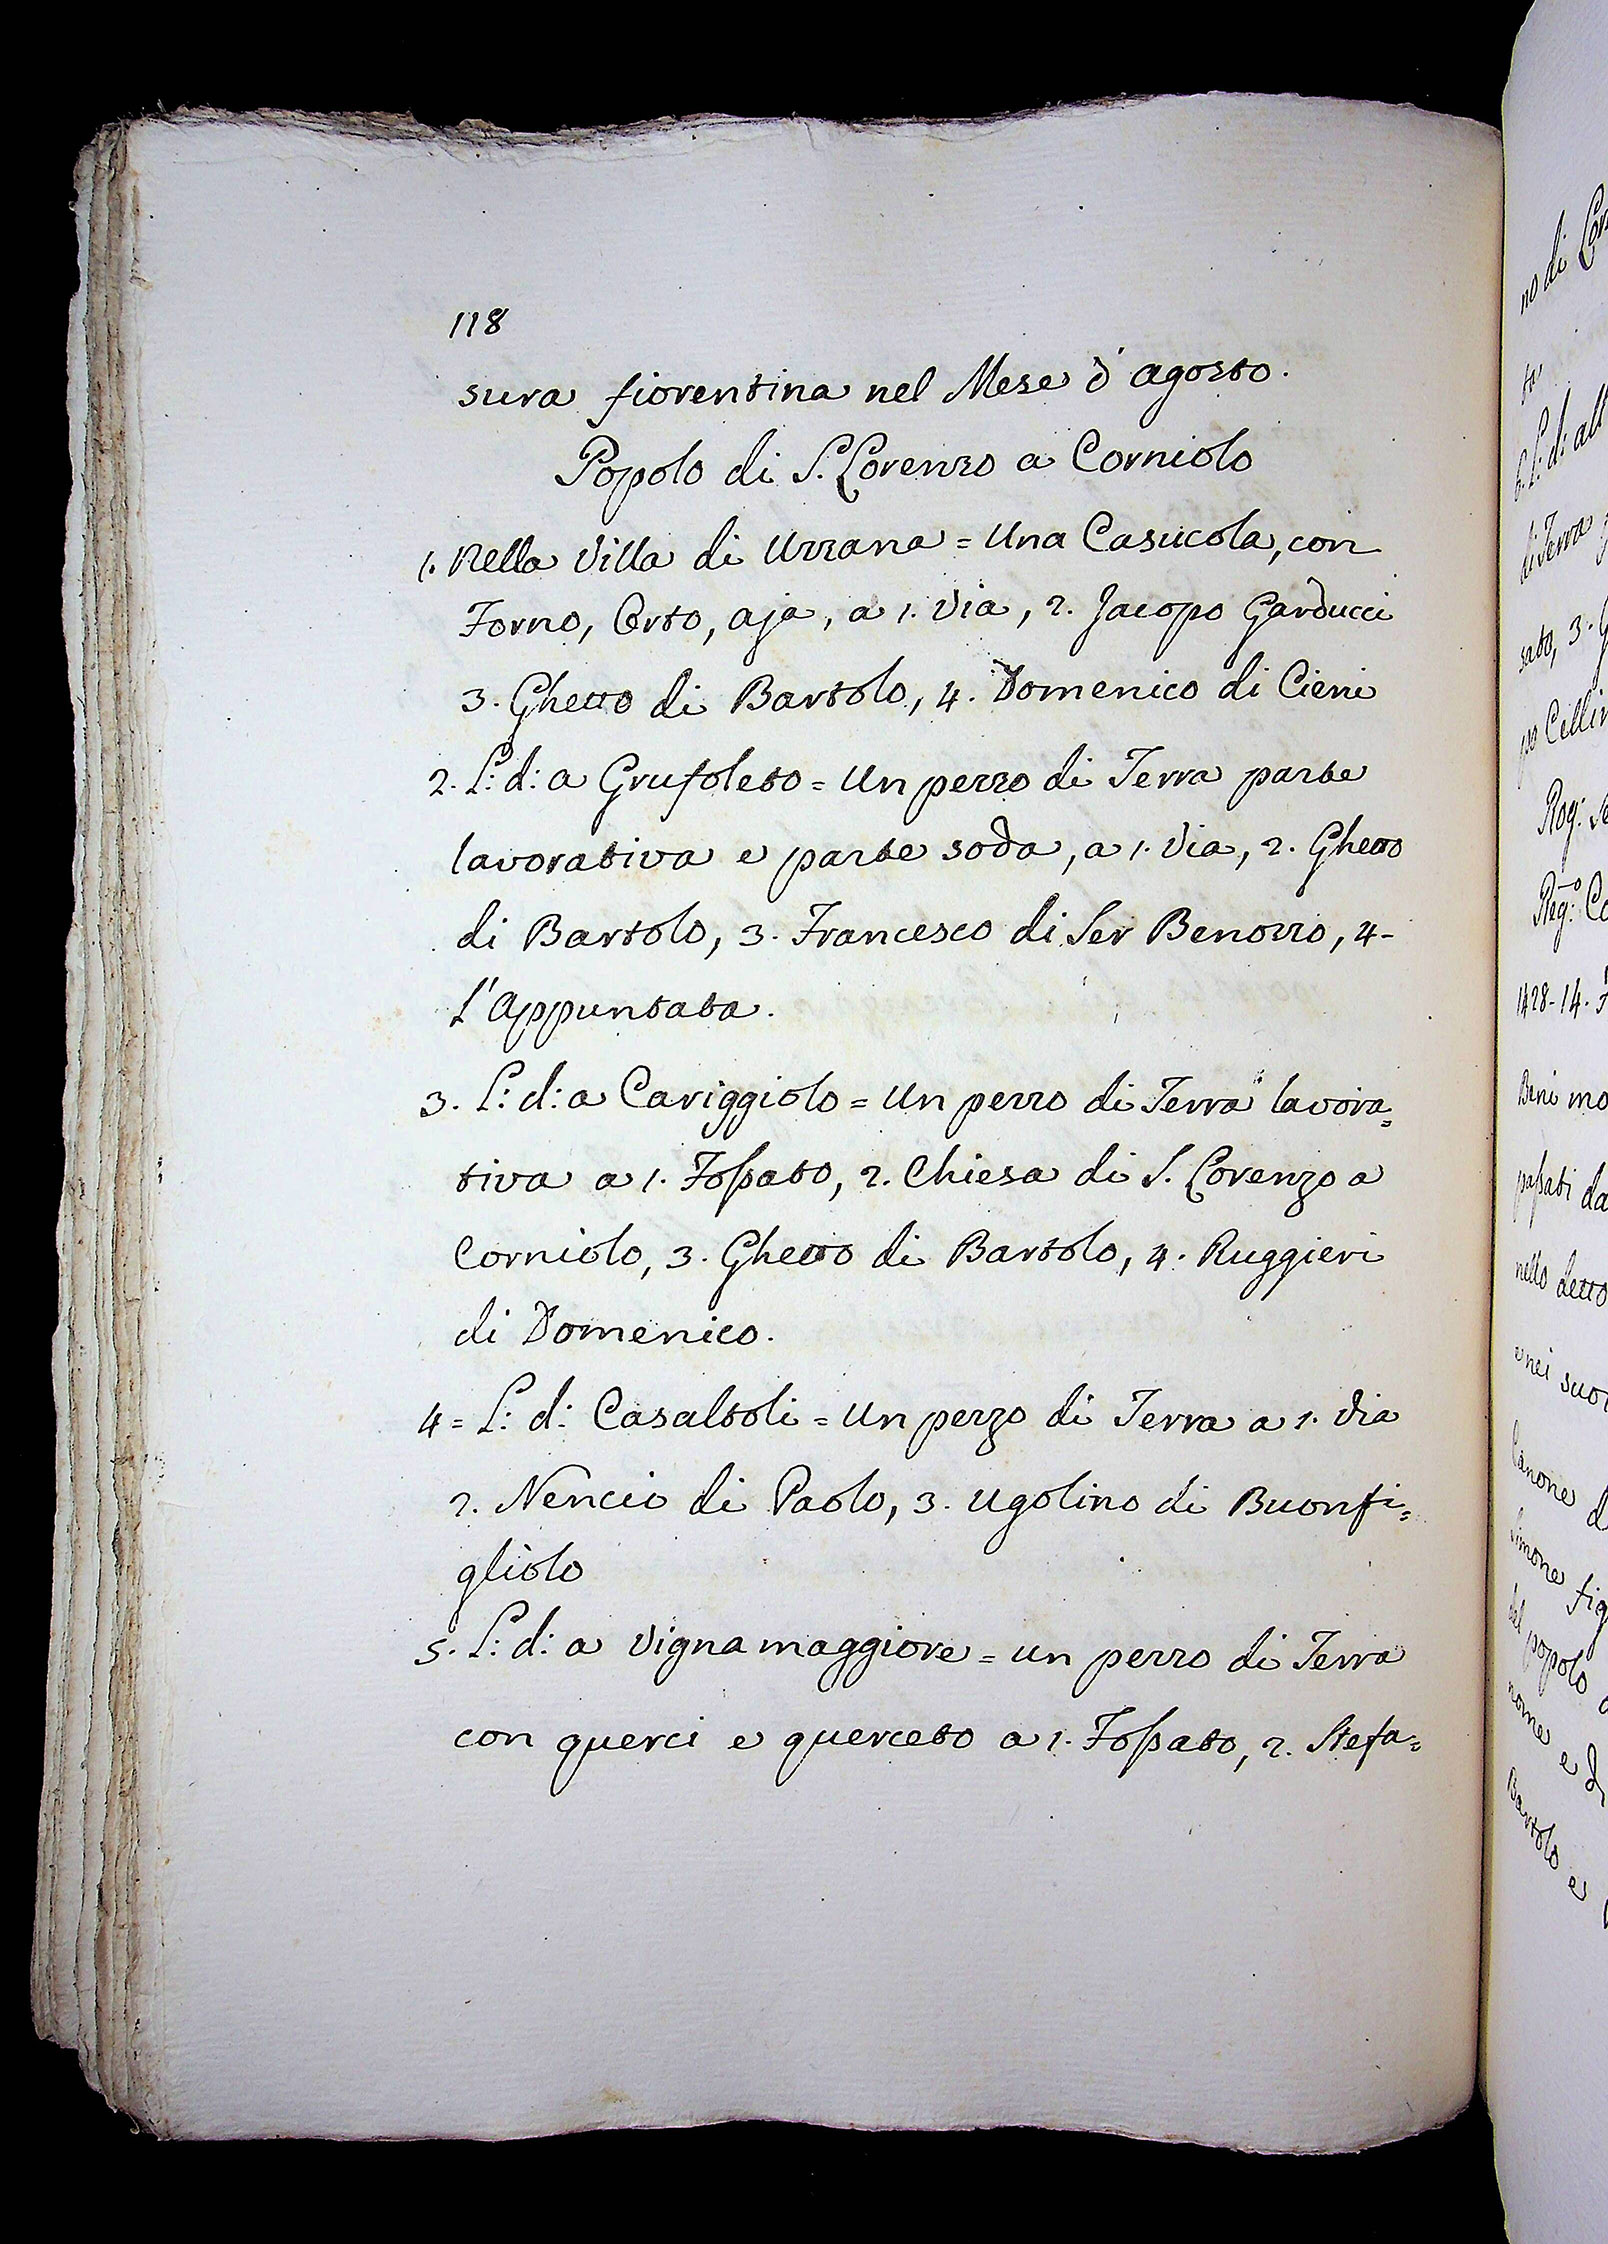 118
sura fiorentina nel Mese d'agosto.
Popolo di S. Lorenzo a Corniolo
1. Nella Villa di Uzzana = Una Casucola, con
Forno, Orto, aja, a 1. Via, 2. Jacopo Garducci
3. Ghetto di Bartolo, 4. Domenico di Cieni
2. L: d: a Grufoleto = Un pezzo di Terra parte
lavorativa e parte soda, a 1. Via, 2. Ghetto
di Bartolo, 3. Francesco di Ser Benozzo, 4-
l'Appuntata.
3. L: d: a Cariggiolo = Un pezzo di Terra lavora=
tiva a 1. Fossato, 2. Chiesa di S. Lorenzo a
Corniolo, 3. Ghetto di Bartolo, 4. Ruggieri
di Domenico.
4 = L: d: Casaltoli = Un pezzo di Terra a 1. Via
2. Nencio di Paolo, 3. Ugolino di Buonfi=
gliolo
5. L: d: a Vigna maggiore = un pezzo di Terra
con querci e querceto a 1. Fossato, 2. Stefa=
no di
6. L: d: al
di Terra
sato, 3.
po
Rog:
Reg:o
1428-14.
Beni mo
passati da
nello detto
e nei suoi
Canone d
Simone fig
del popolo
nome e
Bartolo e